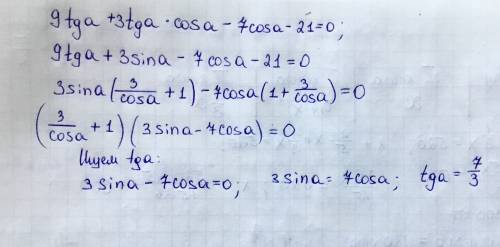 9tga + 3tga · cosa - 7cosa - 21 = 0;
9tga + 3sina - 7cosa - 21 = 0
3sina(3/cosa + 1) - 7cosa(1 + 3/cosa) = 0
(3/cosa + 1)(3sina - 7cosa) = 0
Ищем tga:
3sina - 7cosa = 0; 3sina = 7cosa; tga = 7/3